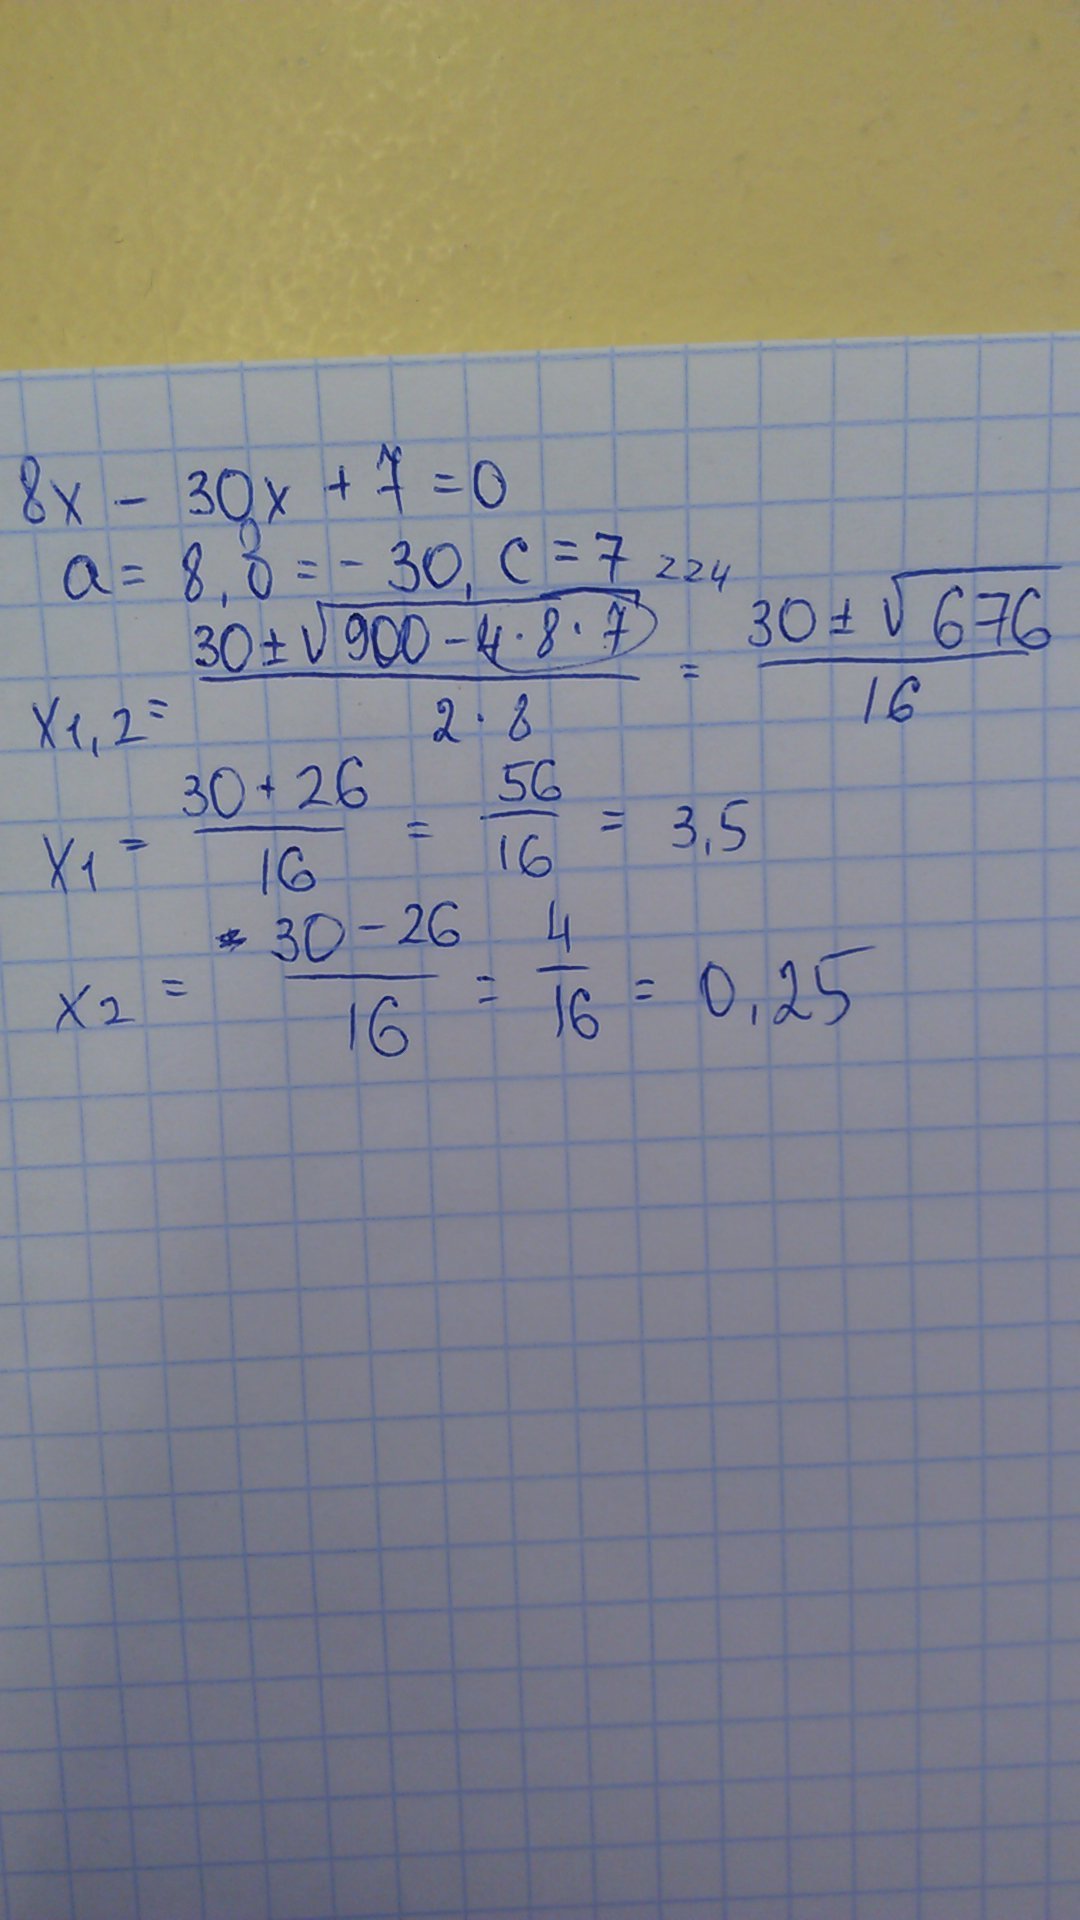 8x - 30x + 7 = 0
a = 8, b = - 30, c = 7 224
x1,2 = (30 ± √(900 - 4 · 8 · 7)) / (2 · 8) = (30 ± √676) / 16
x1 = (30 + 26) / 16 = 56 / 16 = 3,5
x2 = (30 - 26) / 16 = 4 / 16 = 0,25